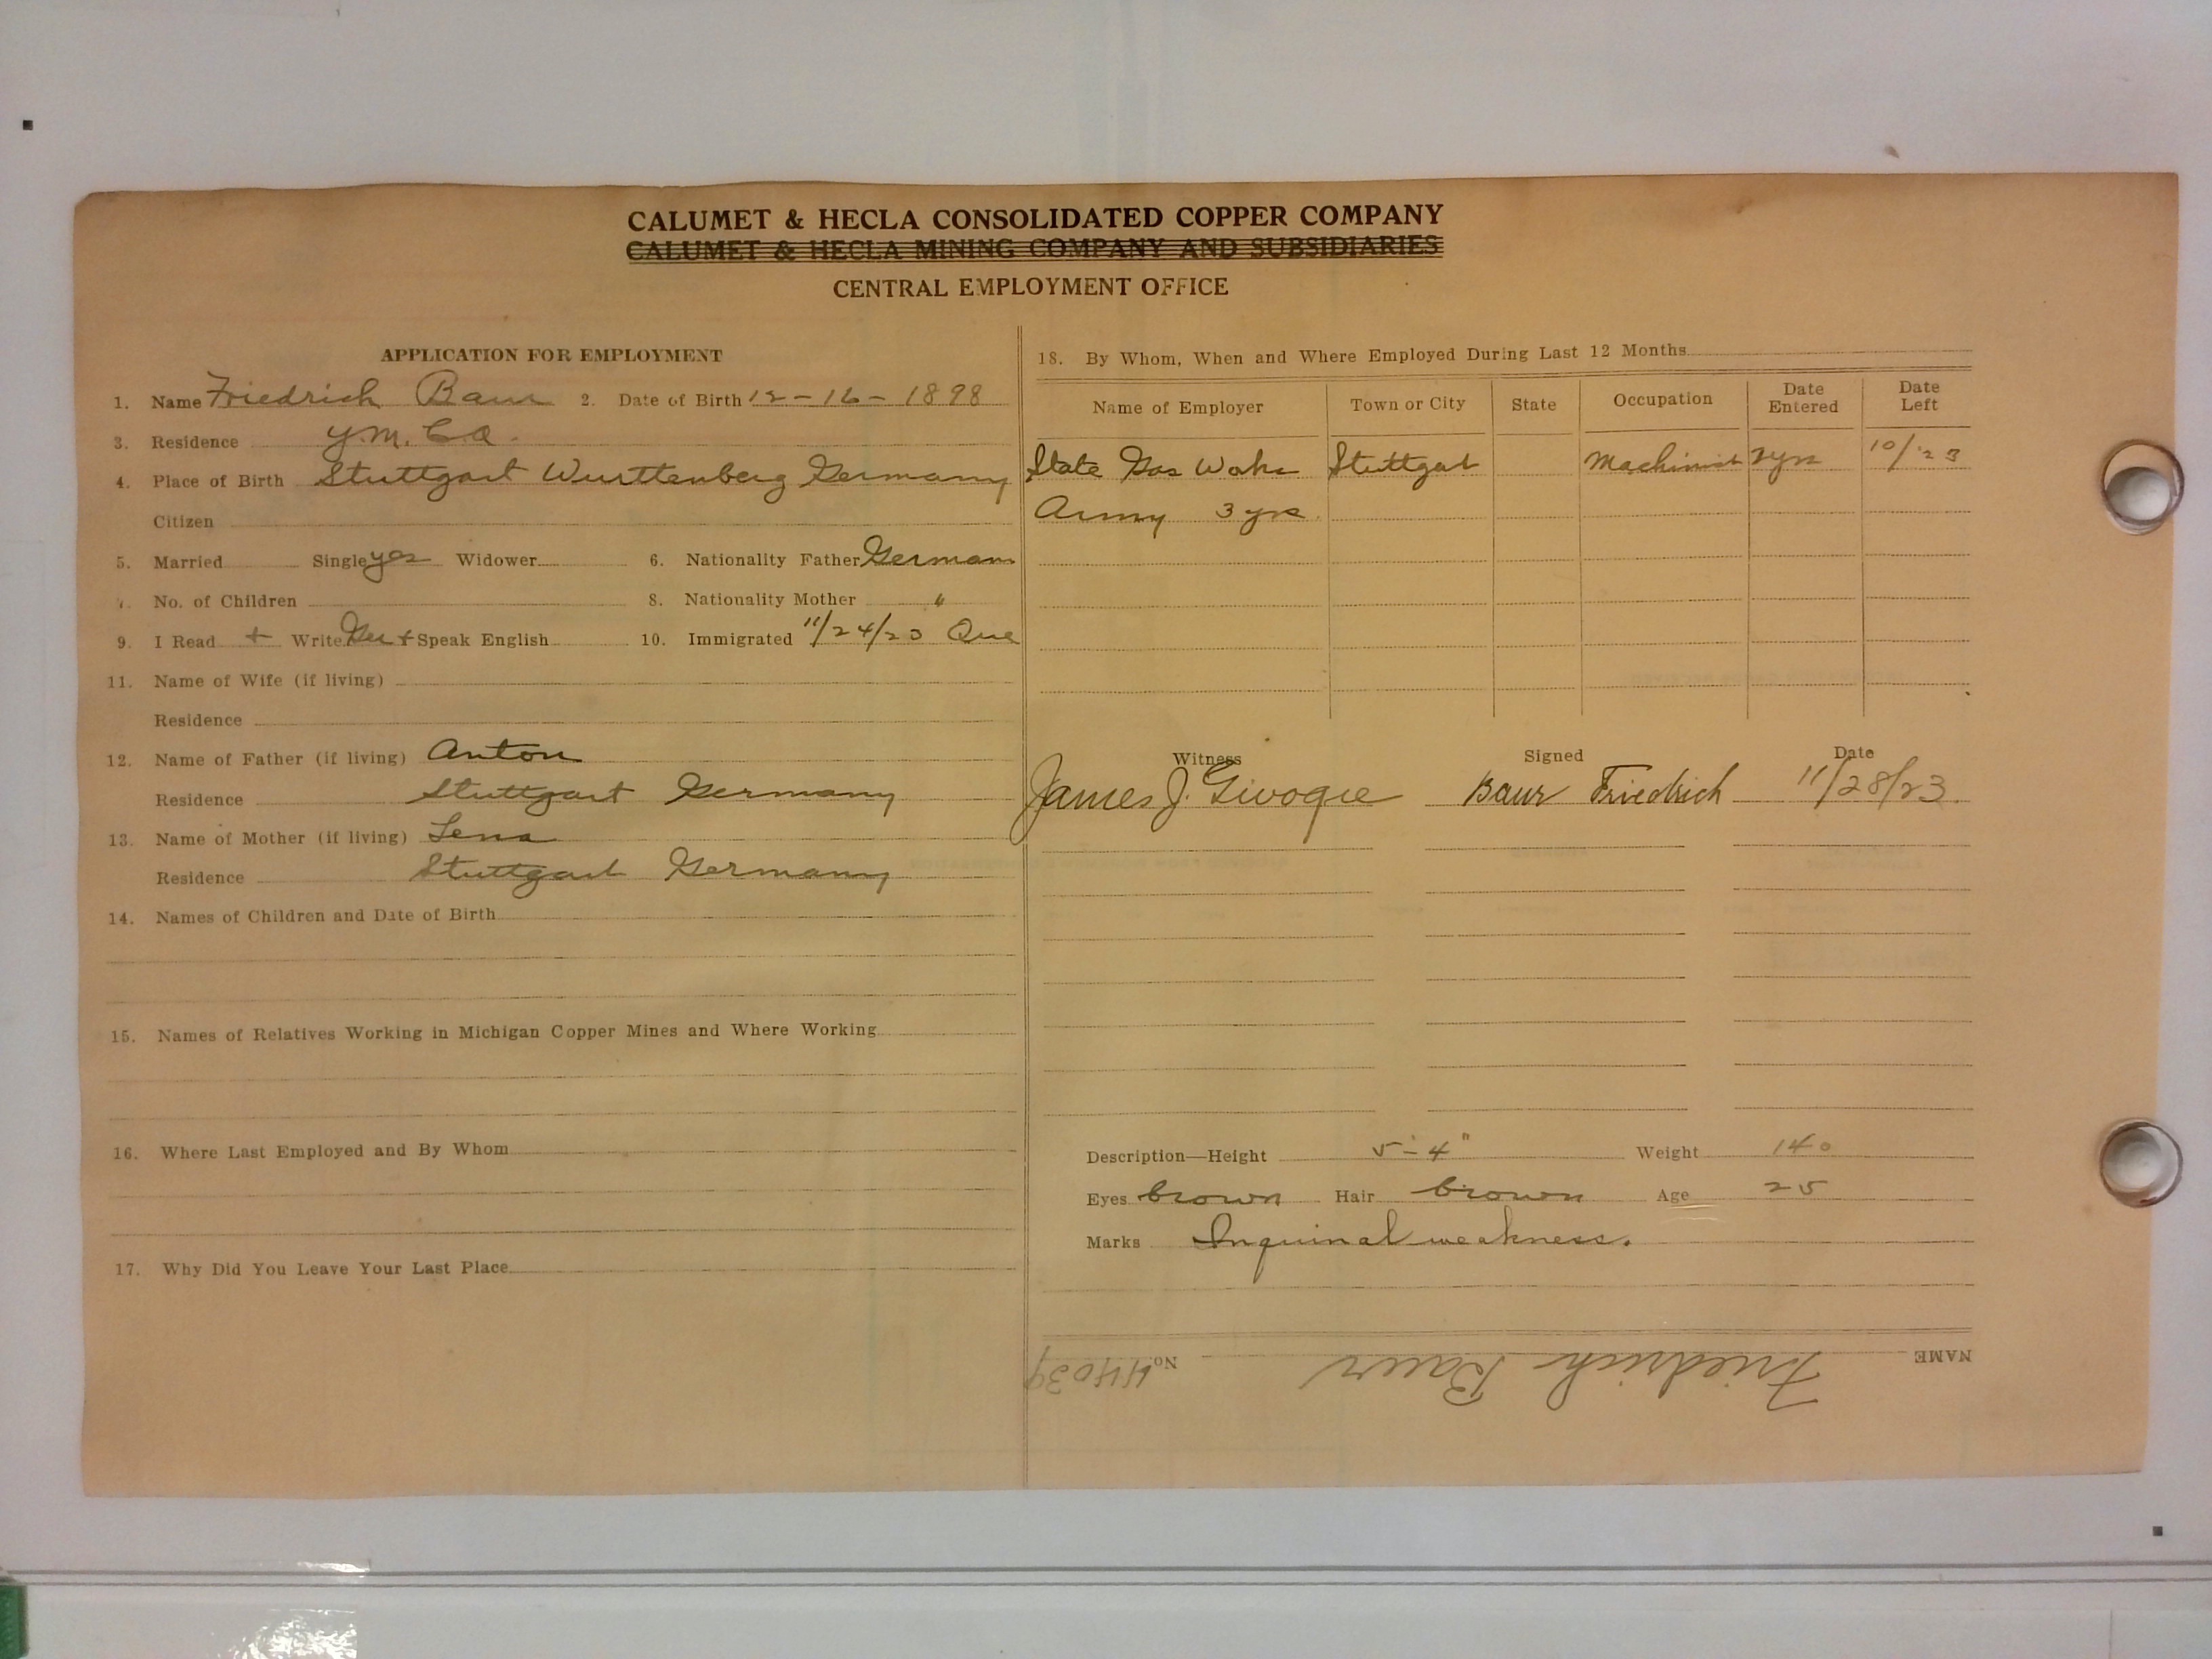 CALUMET & HECLA CONSOLIDATED COPPER COMPANY
CALUMET & HECLA MINING COMPANY AND SUBSIDIARIES
CENTRAL EMPLOYMENT OFFICE
APPLICATION FOR EMPLOYMENT
1. Name Friedrich Baur 2. Date of Birth 12-16-1898
3. Residence Y.M.C.A.
4. Place of Birth Stuttgart Wurttenberg Germany
Citizen
5. Married Single yes Widower 6. Nationality Father German
7. No. of Children 8. Nationality Mother "
9. I Read + Write Ger + Speak English 10. Immigrated 11/24/23 Que
11. Name of Wife (if living)
Residence
12. Name of Father (if living) Anton
Residence Stuttgart Germany
13. Name of Mother (if living) Lena
Residence Stuttgart Germany
14. Names of Children and Date of Birth
15. Names of Relatives Working in Michigan Copper Mines and Where Working
16. Where Last Employed and By Whom
17. Why Did You Leave Your Last Place
18. By Whom, When and Where Employed During Last 12 Months
Name of Employer Town or City State Occupation Date Entered Date Left
State Gas Works Stuttgart Machinist 2yrs 10/'23
Army 3 yrs.
Witness Signed Date
James J. Baur Friedrich 11/28/23.
Description—Height 5'-4" Weight 140
Eyes brown Hair brown Age 25
Marks Inguinal weakness.
NAME Friedrich Baur No.